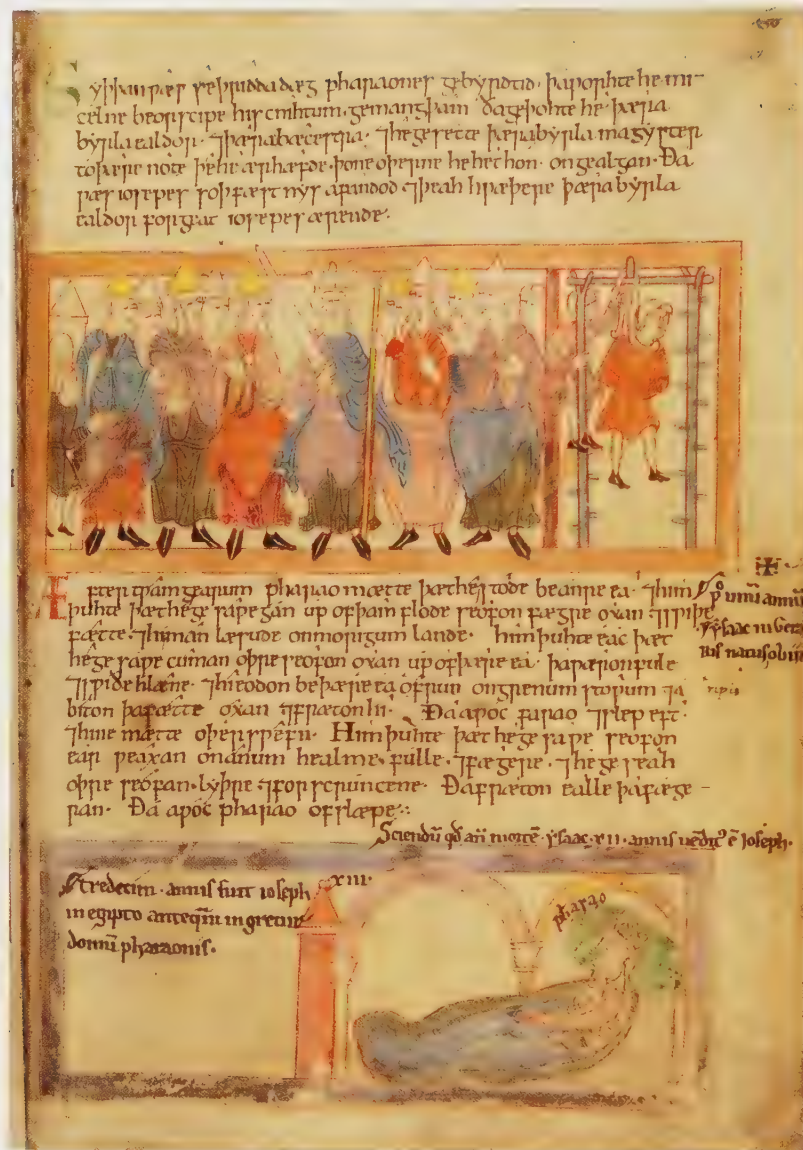 Syþþan ƿæs se þridda dæg pharaones gebyrdtid. þa ƿorhte he mi-
celne beorscipe his cnihtum. gemang þam ða geþohte he þæra
byrla ealdor. ⁊ þæra bæcestra. ⁊ he gesette þæra byrla magyster
to þære note þe he ær hæfde. þone oþerne he het hon. on gealgan. Ða
ƿæs iosepes soþfæstnys afandod ⁊ þeah hƿæþere þæra byrla
ealdor forgeat iosepes ærende.
Æfter tƿam gearum pharao mætte þæt he stode be anre ea. ⁊ him
þuhte þæt he gesaƿe gan up of þam flode seofon fægre oxan ⁊ sƿiþe
fætte. ⁊ hi man læsude on morigum lande. him þuhte eac þæt
he gesaƿe cuman oþre seofon oxan up of þære ea. þa ƿæron fule
⁊ sƿide hlæne. ⁊ hi eodon be þære ea ofrum on grenum stoƿum ⁊ a
biton þa fætte oxan ⁊ fræton hi. Ða aƿoc farao ⁊ slep eft.
⁊ hine mætte oþer sƿefn. Him þuhte þæt he gesaƿe seofon
ear ƿeaxan on anum healme. fulle. ⁊ fægere. ⁊ he geseah
oþre seofan. lyþre ⁊ forscruncene. Ða fræton ealle þa fæge-
ran. Ða aƿoc pharao of slæpe.
ysaac
natus
Sciendū qd ā mortē ysaac. xii. annis uēditꝰ ē ioseph.
tredecim. annis fuit ioseph xiii.
in egipto anteqm ingret
domū pharaonis.
pharao